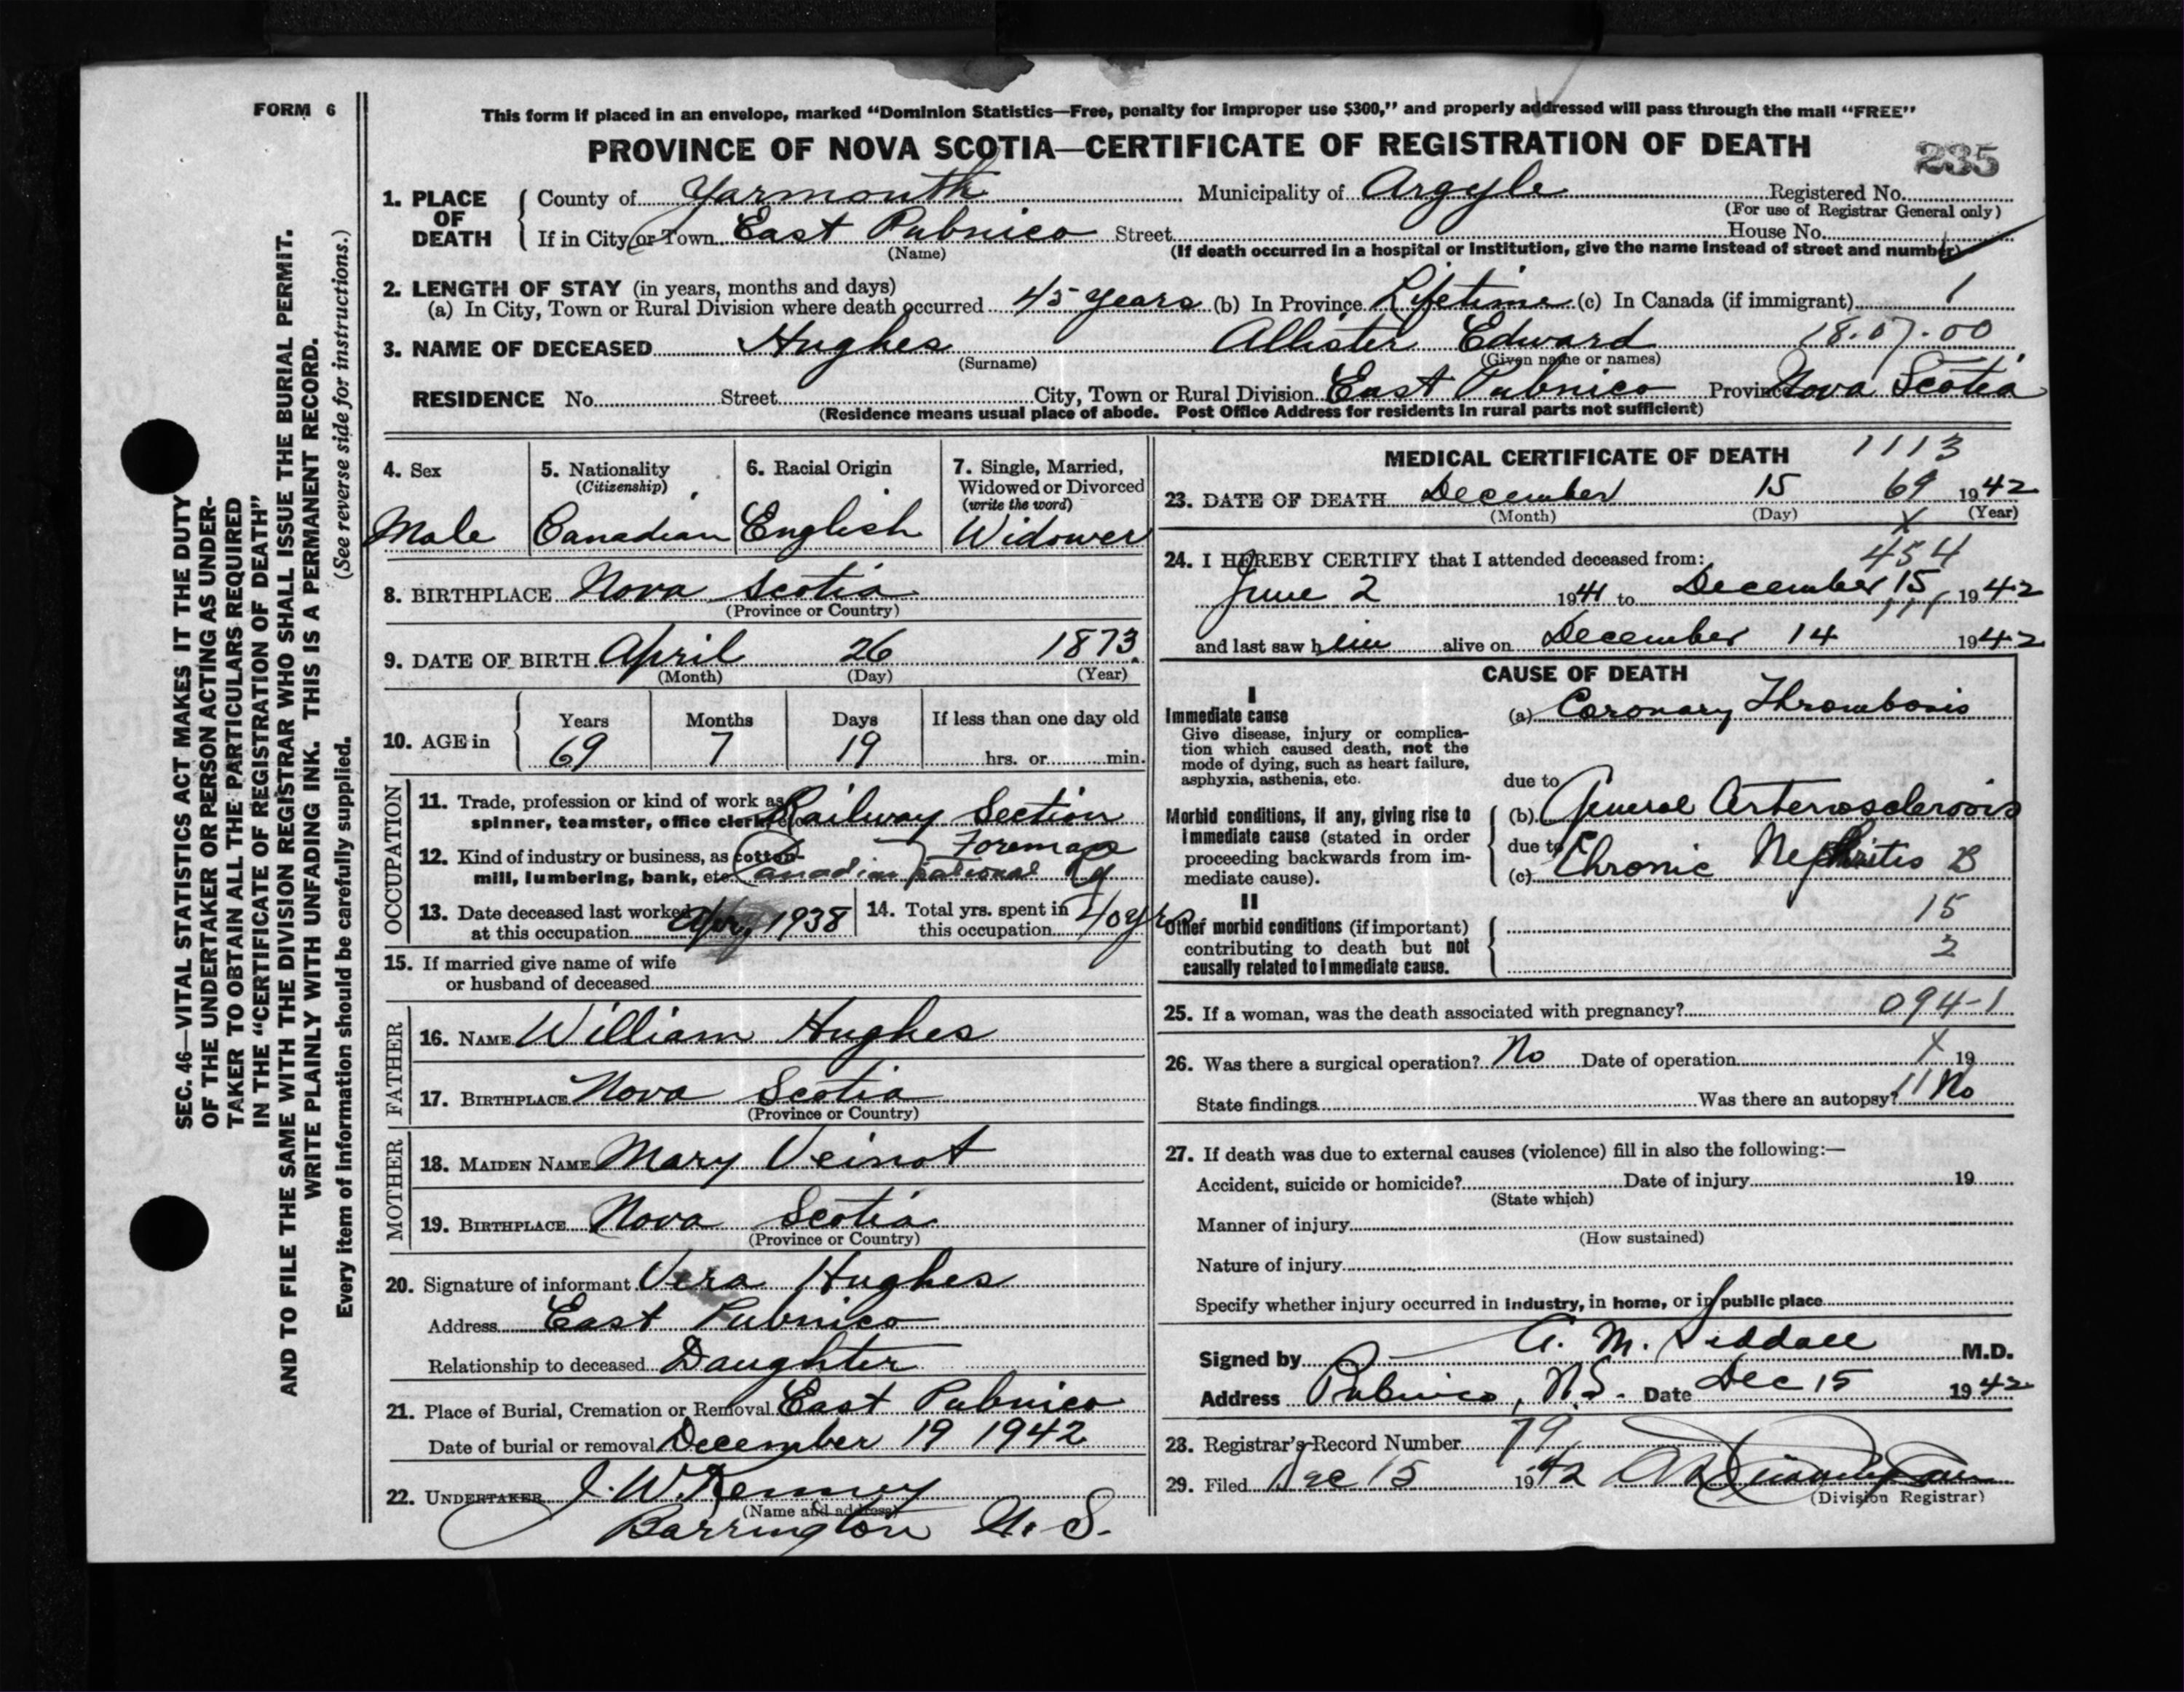 FORM 6
SEC. 46—VITAL STATISTICS ACT MAKES IT THE DUTY
OF THE UNDERTAKER OR PERSON ACTING AS UNDER-
TAKER TO OBTAIN ALL THE PARTICULARS REQUIRED
IN THE "CERTIFICATE OF REGISTRATION OF DEATH"
AND TO FILE THE SAME WITH THE DIVISION REGISTRAR WHO SHALL ISSUE THE BURIAL PERMIT.
WRITE PLAINLY WITH UNFADING INK. THIS IS A PERMANENT RECORD.
Every item of information should be carefully supplied. (See reverse side for instructions.)
This form if placed in an envelope, marked "Dominion Statistics—Free, penalty for improper use $300," and properly addressed will pass through the mail "FREE"
PROVINCE OF NOVA SCOTIA—CERTIFICATE OF REGISTRATION OF DEATH
235
1. PLACE OF DEATH County of Yarmouth Municipality of Argyle Registered No.
(For use of Registrar General only)
If in City or Town East Pubnico Street House No.
(Name) (If death occurred in a hospital or institution, give the name instead of street and number)
2. LENGTH OF STAY (in years, months and days)
(a) In City, Town or Rural Division where death occurred 45 years (b) In Province Lifetime (c) In Canada (if immigrant) 1
3. NAME OF DECEASED Hughes Allister Edward 18.07.00
(Surname) (Given name or names)
RESIDENCE No. Street City, Town or Rural Division East Pubnico Province Nova Scotia
(Residence means usual place of abode. Post Office Address for residents in rural parts not sufficient)
4. Sex
Male
5. Nationality
(Citizenship)
Canadian
6. Racial Origin
English
7. Single, Married,
Widowed or Divorced
(write the word)
Widower
8. BIRTHPLACE Nova Scotia
(Province or Country)
9. DATE OF BIRTH April 26 1873
(Month) (Day) (Year)
10. AGE in Years Months Days If less than one day old
69 7 19 hrs. or min.
OCCUPATION
11. Trade, profession or kind of work as
spinner, teamster, office clerk, etc. Railway Section
Foreman
12. Kind of industry or business, as cotton-
mill, lumbering, bank, etc. Canadian National Ry
13. Date deceased last worked
at this occupation Apr, 1938
14. Total yrs. spent in
this occupation 40 yrs
15. If married give name of wife
or husband of deceased
FATHER
16. NAME William Hughes
17. BIRTHPLACE Nova Scotia
(Province or Country)
MOTHER
18. MAIDEN NAME Mary Veinot
19. BIRTHPLACE Nova Scotia
(Province or Country)
20. Signature of informant Vera Hughes
Address East Pubnico
Relationship to deceased Daughter
21. Place of Burial, Cremation or Removal East Pubnico
Date of burial or removal December 19 1942
22. UNDERTAKER J. W. Kenney
(Name and address)
Barrington N. S.
MEDICAL CERTIFICATE OF DEATH 1113
23. DATE OF DEATH December 15 69 1942
(Month) (Day) X (Year)
24. I HEREBY CERTIFY that I attended deceased from: 454
June 2 1941 to December 15 1942
and last saw him alive on December 14 1942
CAUSE OF DEATH
I
Immediate cause
Give disease, injury or complica-
tion which caused death, not the
mode of dying, such as heart failure,
asphyxia, asthenia, etc.
(a) Coronary Thrombosis
due to
Morbid conditions, if any, giving rise to
immediate cause (stated in order
proceeding backwards from im-
mediate cause).
(b) General Arteriosclerosis
due to
(c) Chronic Nephritis B
II
Other morbid conditions (if important)
contributing to death but not
causally related to immediate cause.
15
2
25. If a woman, was the death associated with pregnancy? 094-1
26. Was there a surgical operation? No Date of operation X 19
State findings Was there an autopsy? 11 No
27. If death was due to external causes (violence) fill in also the following:—
Accident, suicide or homicide? Date of injury 19
(State which)
Manner of injury
(How sustained)
Nature of injury
Specify whether injury occurred in industry, in home, or in public place
Signed by A. M. Siddall M.D.
Address Pubnico, N.S. Date Dec 15 1942
28. Registrar's Record Number 79
29. Filed Dec 15 1942
(Division Registrar)